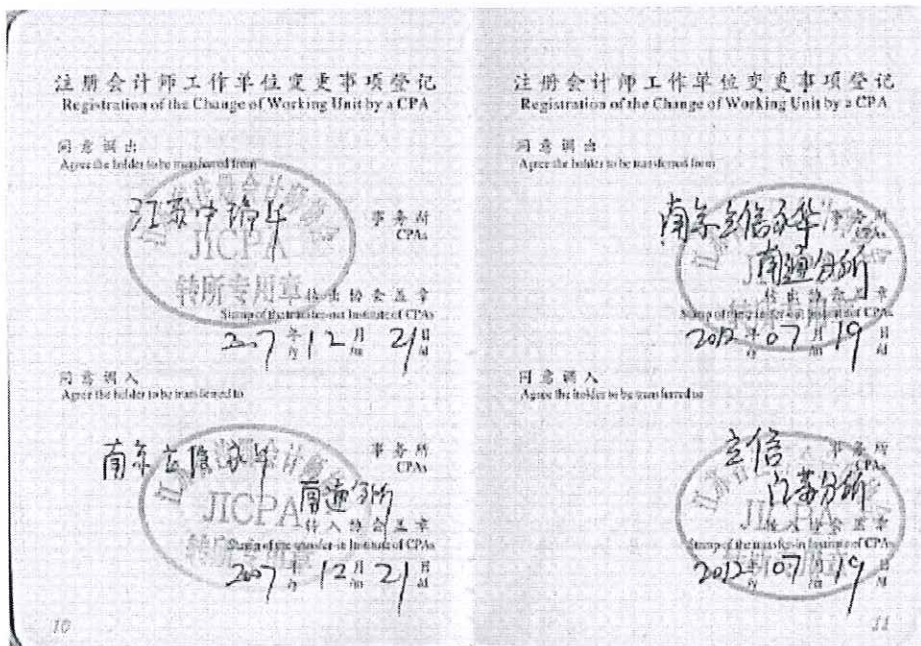 注册会计师工作单位变更事项登记
Registration of the Change of Working Unit by a CPA
同意调出
Agree the holder to be transferred from
江苏中瑞华
事务所
CPAs
JICPA
转所专用章
转出协会盖章
Stamp of the transfer-out Institute of CPAs
2007年12月21日
/y /m /d
同意调入
Agree the holder to be transferred to
南京立信永华
事务所
CPAs
南通分所
JICPA
转入协会盖章
Stamp of the transfer-in Institute of CPAs
2007年12月21日
/y /m /d
10
注册会计师工作单位变更事项登记
Registration of the Change of Working Unit by a CPA
同意调出
Agree the holder to be transferred from
南京立信永华
事务所
CPAs
南通分所
转出协会盖章
Stamp of the transfer-out Institute of CPAs
2012年07月19日
/y /m /d
同意调入
Agree the holder to be transferred to
立信
事务所
CPAs
江苏分所
转入协会盖章
Stamp of the transfer-in Institute of CPAs
2012年07月19日
/y /m /d
11